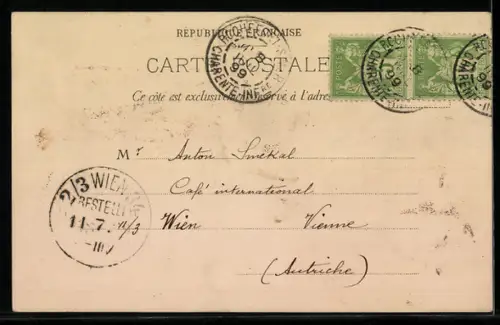 RÉPUBLIQUE FRANÇAISE
CARTE POSTALE
Ce côté est exclusivement réservé à l'adresse
ROCHEFORT-S-
99
CHARENTE-INF
POSTES
99
99
Mr Anton Smékal
Café international
Wien Vienne
II/3
(Autriche)
2/3 WIEN
BESTELLT
11.7.